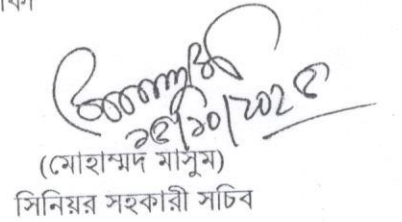 ১৫/১০/২০২৫
(মোহাম্মদ মাসুম)
সিনিয়র সহকারী সচিব